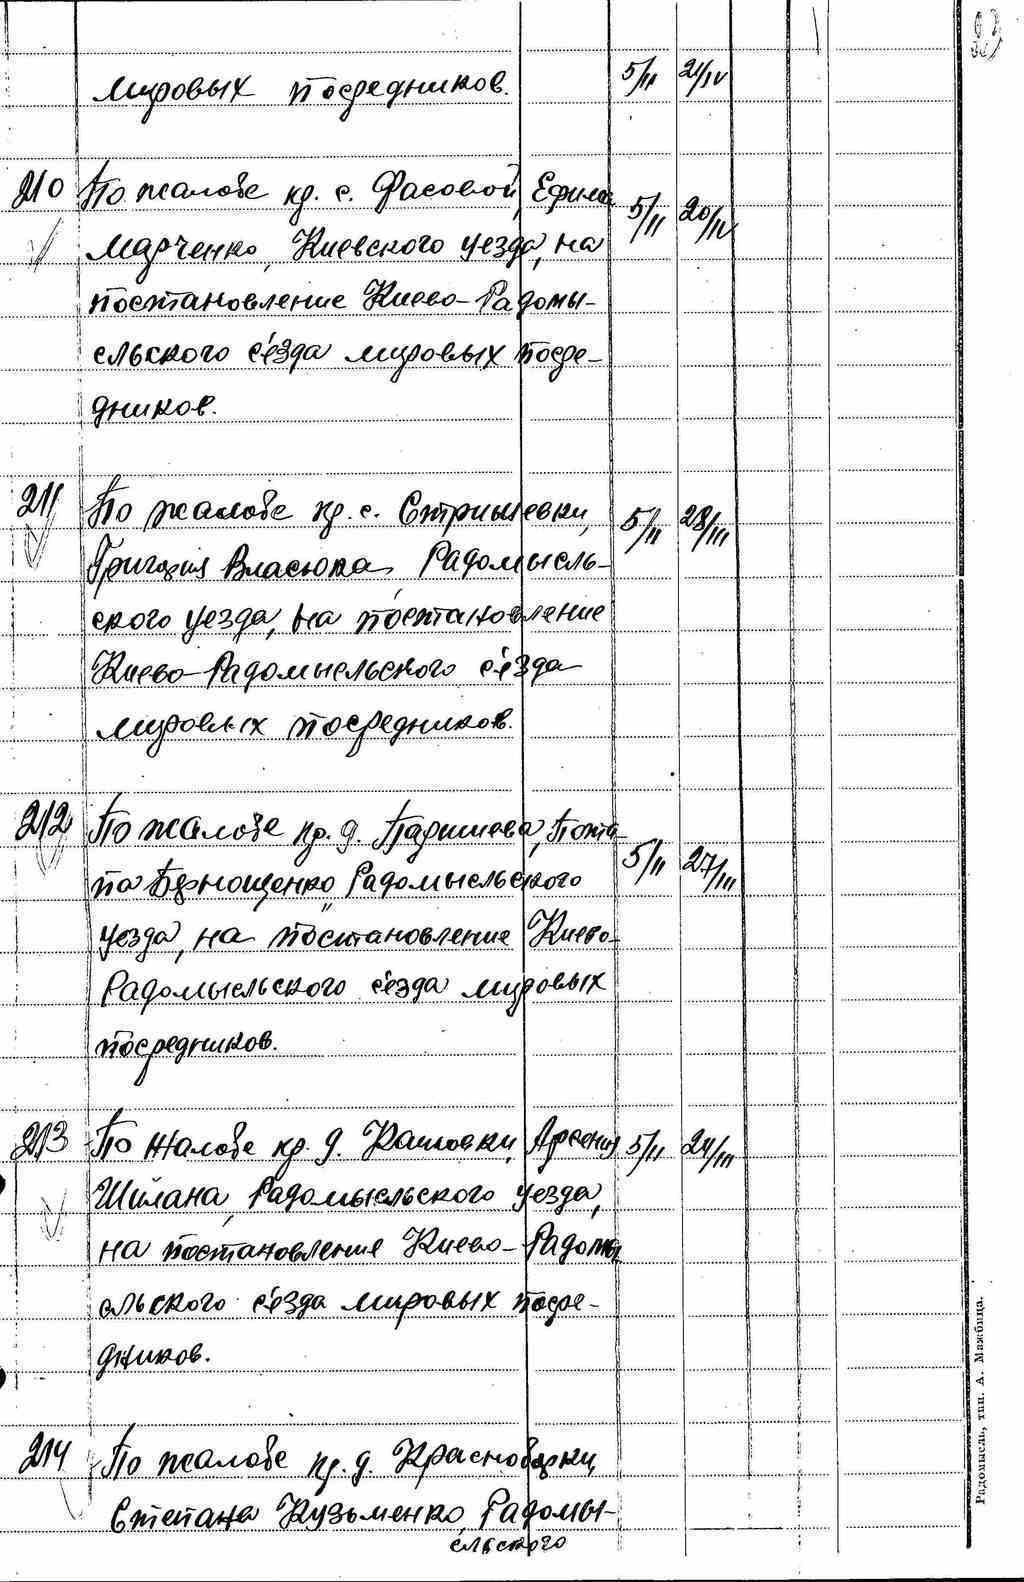 мировых посредников. 5/II 21/IV
210 По жалобе кр. с. Фасовой, Ефима 5/II 20/IV
Марченко, Киевского уезда, на
постановление Киево-Радомы-
сльского с'езда мировых посре-
дников.
211 По жалобе кр. с. Ситрыжевки, 5/II 28/III
Григория Власюка, Радомысль-
ского уезда, на постановление
Киево-Радомысльского с'езда
мировых посредников.
212 По жалобе кр. д. Поташ- 5/II 27/III
па Радомысльского
уезда, на постановление Киево-
Радомысльского с'езда мировых
посредников.
213 По жалобе кр. д. Арсения 5/II 24/III
Шилана, Радомысльского уезда,
на постановление Киево-Радомы
сльского с'езда мировых посре-
дников.
214 По жалобе кр. д. Красноборки,
Степана Кузьменко, Радомы-
сльского
Радомысль, тип. А. Мажбица.